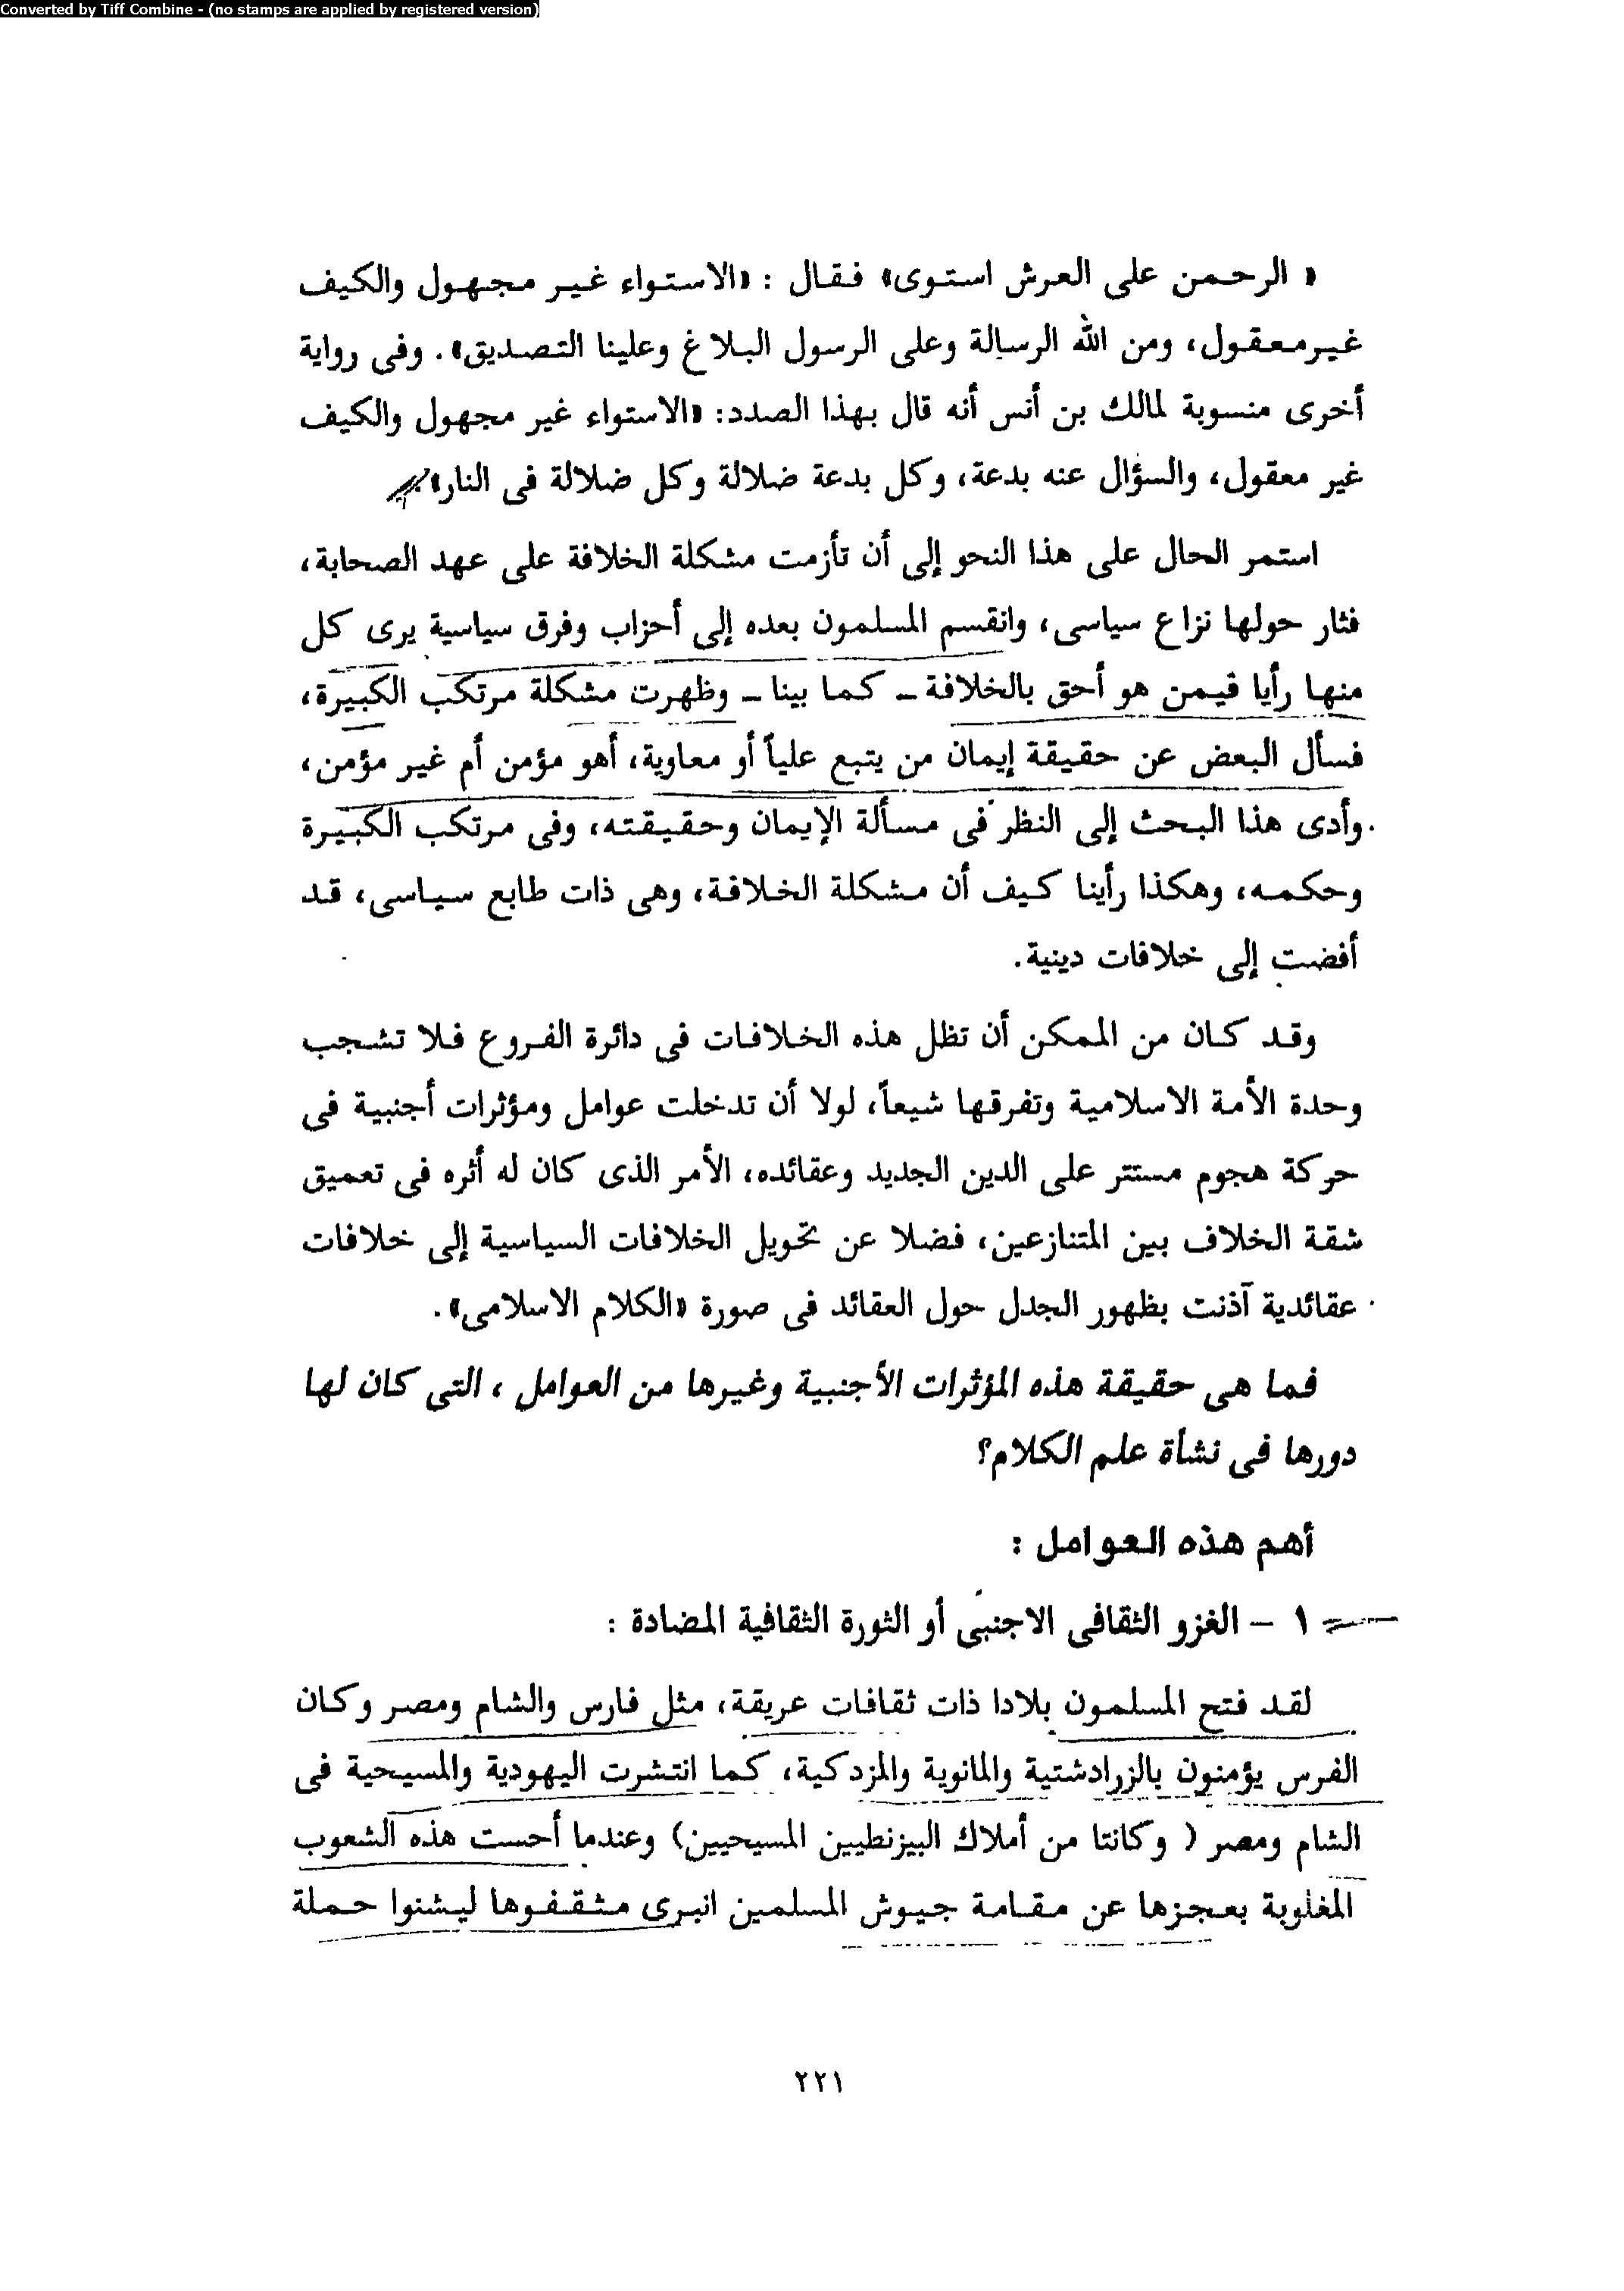 Converted by Tiff Combine - (no stamps are applied by registered version)
« الرحمن على العرش استوى» فقال : «الاستواء غير مجهول والكيف
غيرمعقول، ومن الله الرسالة وعلى الرسول البلاغ وعلينا التصديق». وفى رواية
أخرى منسوبة لمالك بن أنس أنه قال بهذا الصدد: «الاستواء غير مجهول والكيف
غير معقول، والسؤال عنه بدعة، وكل بدعة ضلالة وكل ضلالة فى النار».
استمر الحال على هذا النحو إلى أن تأزمت مشكلة الخلافة على عهد الصحابة،
فثار حولها نزاع سياسى، وانقسم المسلمون بعده إلى أحزاب وفرق سياسية يرى كل
منها رأيا فيمن هو أحق بالخلافة - كما بينا - وظهرت مشكلة مرتكب الكبيرة،
فسأل البعض عن حقيقة إيمان من يتبع علياً أو معاوية، أهو مؤمن أم غير مؤمن،
وأدى هذا البحث إلى النظر فى مسألة الإيمان وحقيقته، وفى مرتكب الكبيرة
وحكمه، وهكذا رأينا كيف أن مشكلة الخلافة، وهى ذات طابع سياسى، قد
أفضت إلى خلافات دينية.
وقد كان من الممكن أن تظل هذه الخلافات فى دائرة الفروع فلا تشجب
وحدة الأمة الاسلامية وتفرقها شيعاً، لولا أن تدخلت عوامل ومؤثرات أجنبية فى
حركة هجوم مستتر على الدين الجديد وعقائده، الأمر الذى كان له أثره فى تعميق
شقة الخلاف بين المتنازعين، فضلا عن تحويل الخلافات السياسية إلى خلافات
عقائدية آذنت بظهور الجدل حول العقائد فى صورة «الكلام الاسلامى».
فما هى حقيقة هذه المؤثرات الأجنبية وغيرها من العوامل ، التى كان لها
دورها فى نشأة علم الكلام؟
أهم هذه العوامل :
١ - الغزو الثقافى الاجنبى أو الثورة الثقافية المضادة :
لقد فتح المسلمون بلادا ذات ثقافات عريقة، مثل فارس والشام ومصر وكان
الفرس يؤمنون بالزرادشتية والمانوية والمزدكية، كما انتشرت اليهودية والمسيحية فى
الشام ومصر ( وكانتا من أملاك البيزنطيين المسيحيين) وعندما أحست هذه الشعوب
المغلوبة بعجزها عن مقامة جيوش المسلمين انبرى مثقفوها ليشنوا حملة
٢٢١